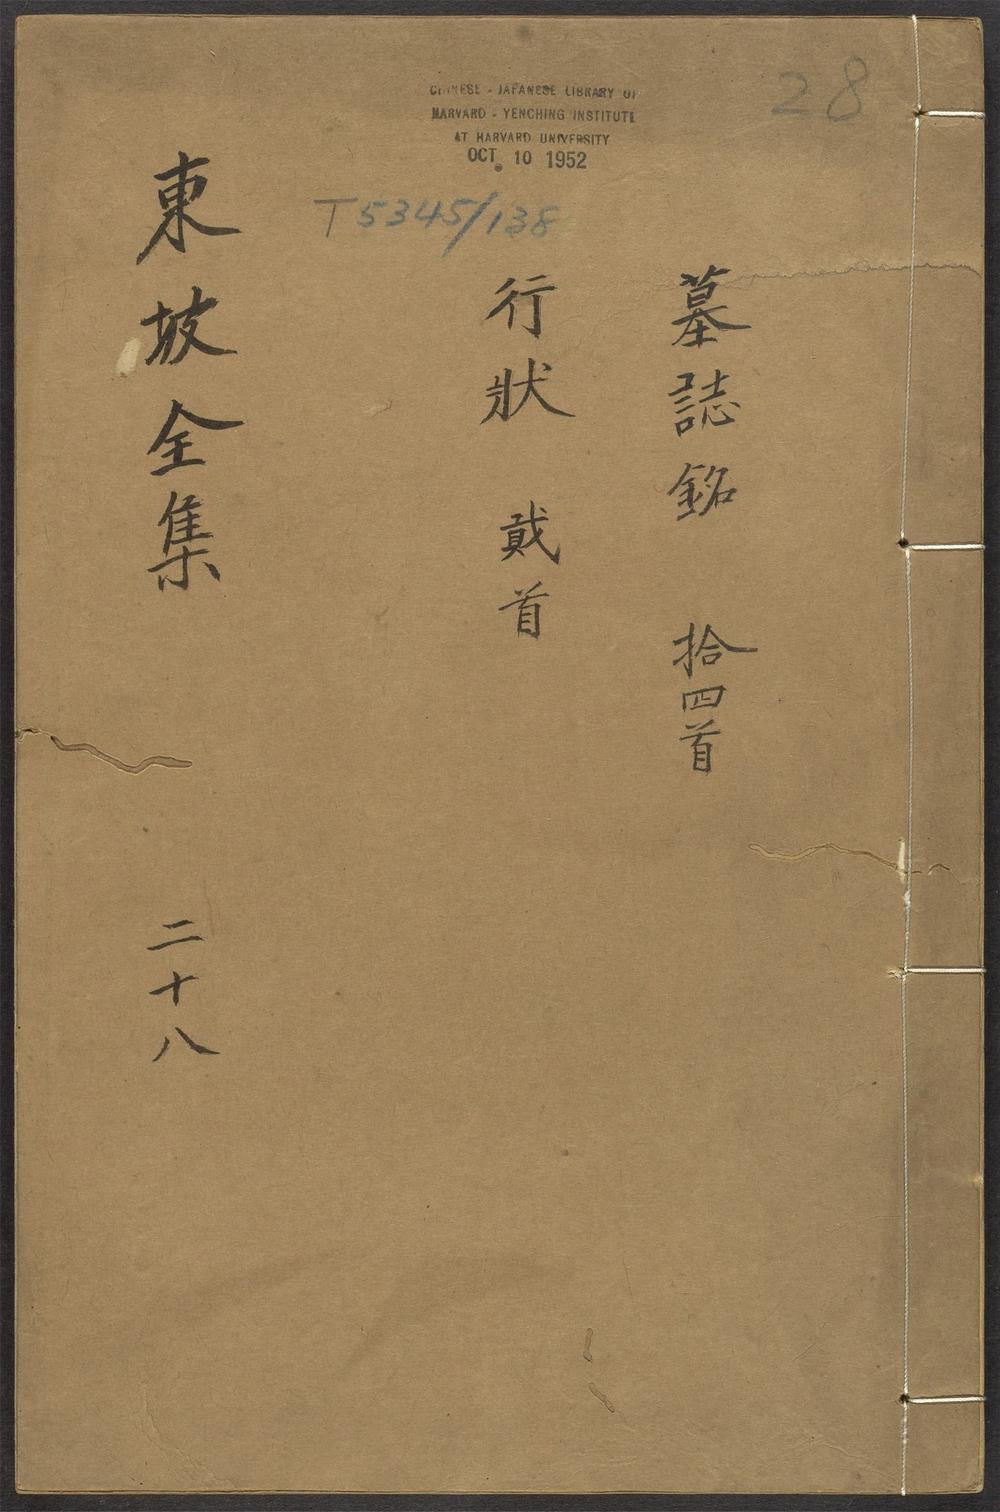 28
CHINESE - JAPANESE LIBRARY OF
HARVARD - YENCHING INSTITUTE
AT HARVARD UNIVERSITY
OCT 10 1952
T5345/138
墓誌銘 拾四首
行狀 貳首
東坡全集 二十八